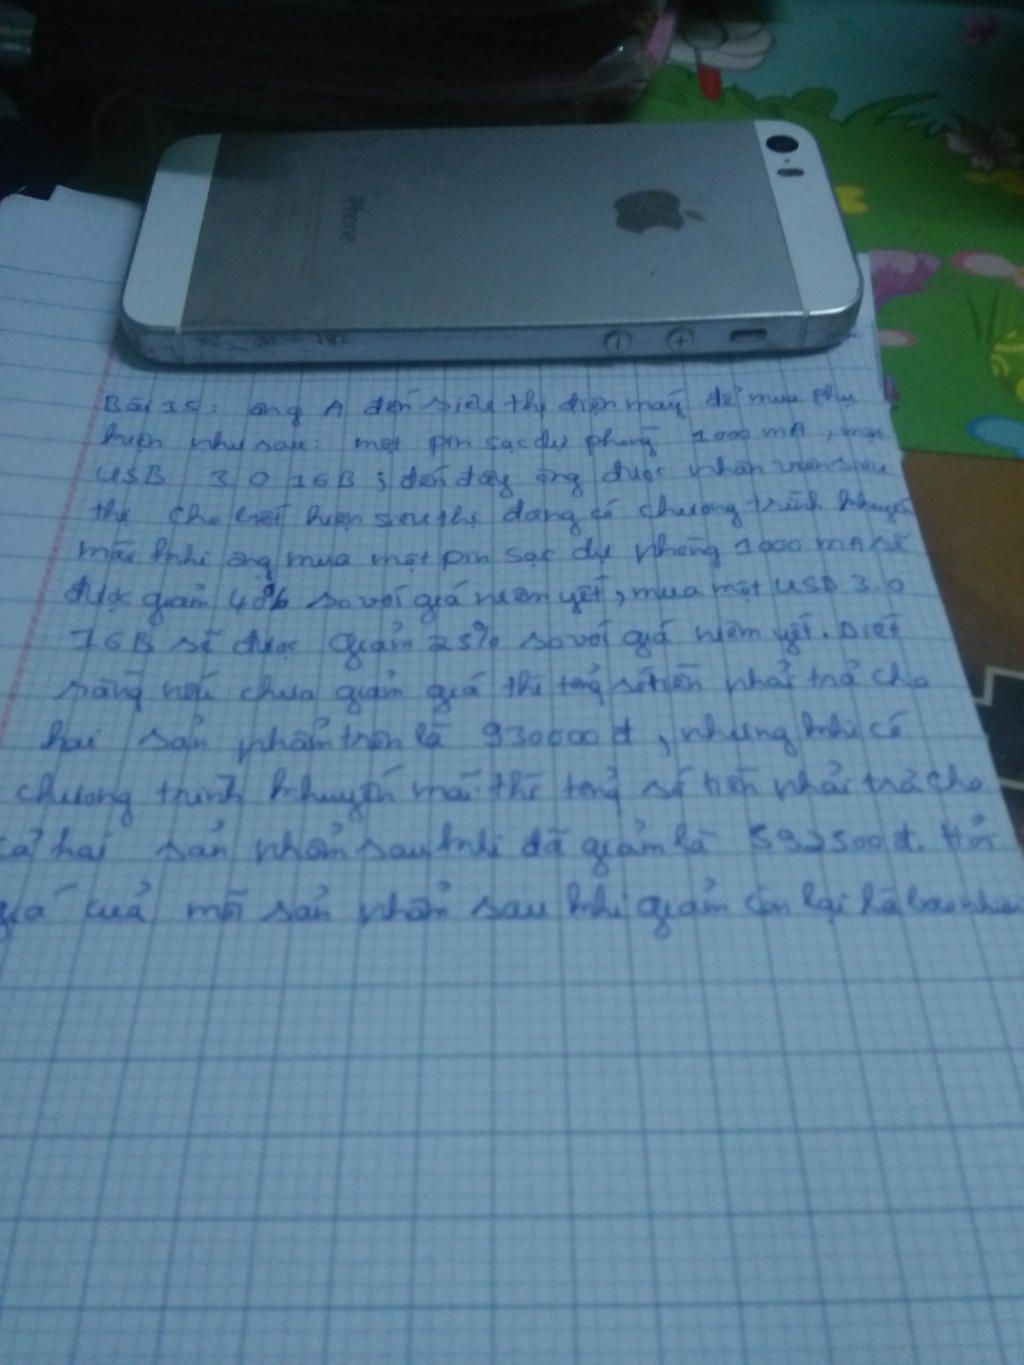 iPhone
Bài 15: ông A đến siêu thị điện máy để mua phụ
kiện như sau: một pin sạc dự phòng 1000 mA, một
USB 3.0 16B; đến đây ông được nhân viên siêu
thị cho biết hiện siêu thị đang có chương trình khuyến
mãi khi ông mua một pin sạc dự phòng 1000 mA sẽ
được giảm 40% so với giá niêm yết, mua một USB 3.0
16B sẽ được giảm 25% so với giá niêm yết. Biết
rằng nếu chưa giảm giá thì tổng số tiền phải trả cho
hai sản phẩm trên là 930000đ, nhưng khi có
chương trình khuyến mãi thì tổng số tiền phải trả cho
cả hai sản phẩm sau khi đã giảm là 592500đ. Hỏi
giá của mỗi sản phẩm sau khi giảm còn lại là bao nhiêu